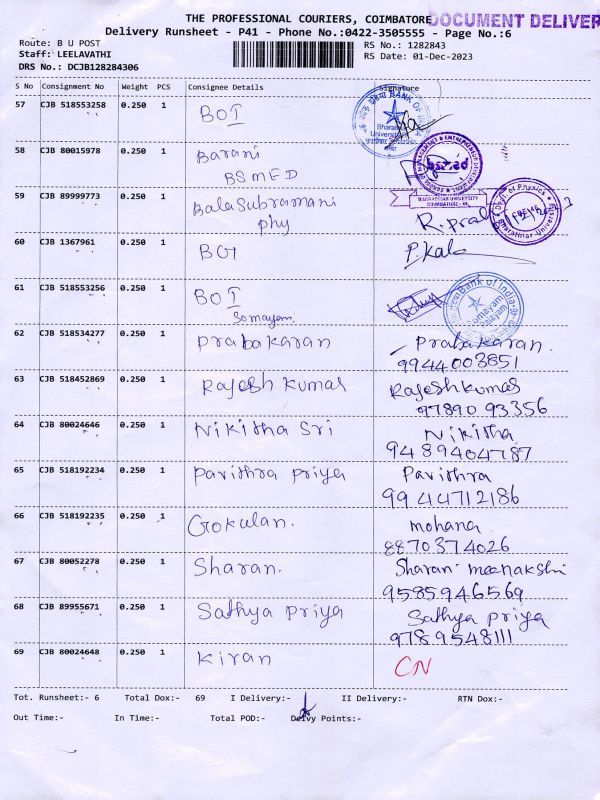 THE PROFESSIONAL COURIERS, COIMBATORE DOCUMENT DELIVER
Delivery Runsheet - P41 - Phone No.:0422-3505555 - Page No.:6
Route: B U POST RS No.: 1282843
Staff: LEELAVATHI RS Date: 01-Dec-2023
DRS No.: DCJB128284306
S No Consignment No Weight PCS Consignee Details Signature
57 CJB 518553258 0.250 1 BOI
58 CJB 80015978 0.250 1 Barani
BSMED bsmed
BHARATHIAR UNIVERSITY
COIMBATORE - 46.
59 CJB 89999773 0.250 1 BalaSubramani
phy R. pral
60 CJB 1367961 0.250 1 BGI P. Kal
61 CJB 518553256 0.250 1 BOI
Somayam Bank of India
62 CJB 518534277 0.250 1 prabakaran Prabakaran.
9944003851
63 CJB 518452869 0.250 1 Rajesh kumar Rajeshkumar
97890 93356
64 CJB 80024646 0.250 1 Nikitha Sri Nikitha
9489404787
65 CJB 518192234 0.250 1 Pavithra priya Pavithra
9944712186
66 CJB 518192235 0.250 1 Gokulan. mohana
8870374026
67 CJB 80052278 0.250 1 Sharan. Sharan meenakshi
9585946569
68 CJB 89955671 0.250 1 Sathya priya Sathya priya
9789548111
69 CJB 80024648 0.250 1 Kiran CN
Tot. Runsheet:- 6 Total Dox:- 69 I Delivery:- II Delivery:- RTN Dox:-
Out Time:- In Time:- Total POD:- Delvy Points:-